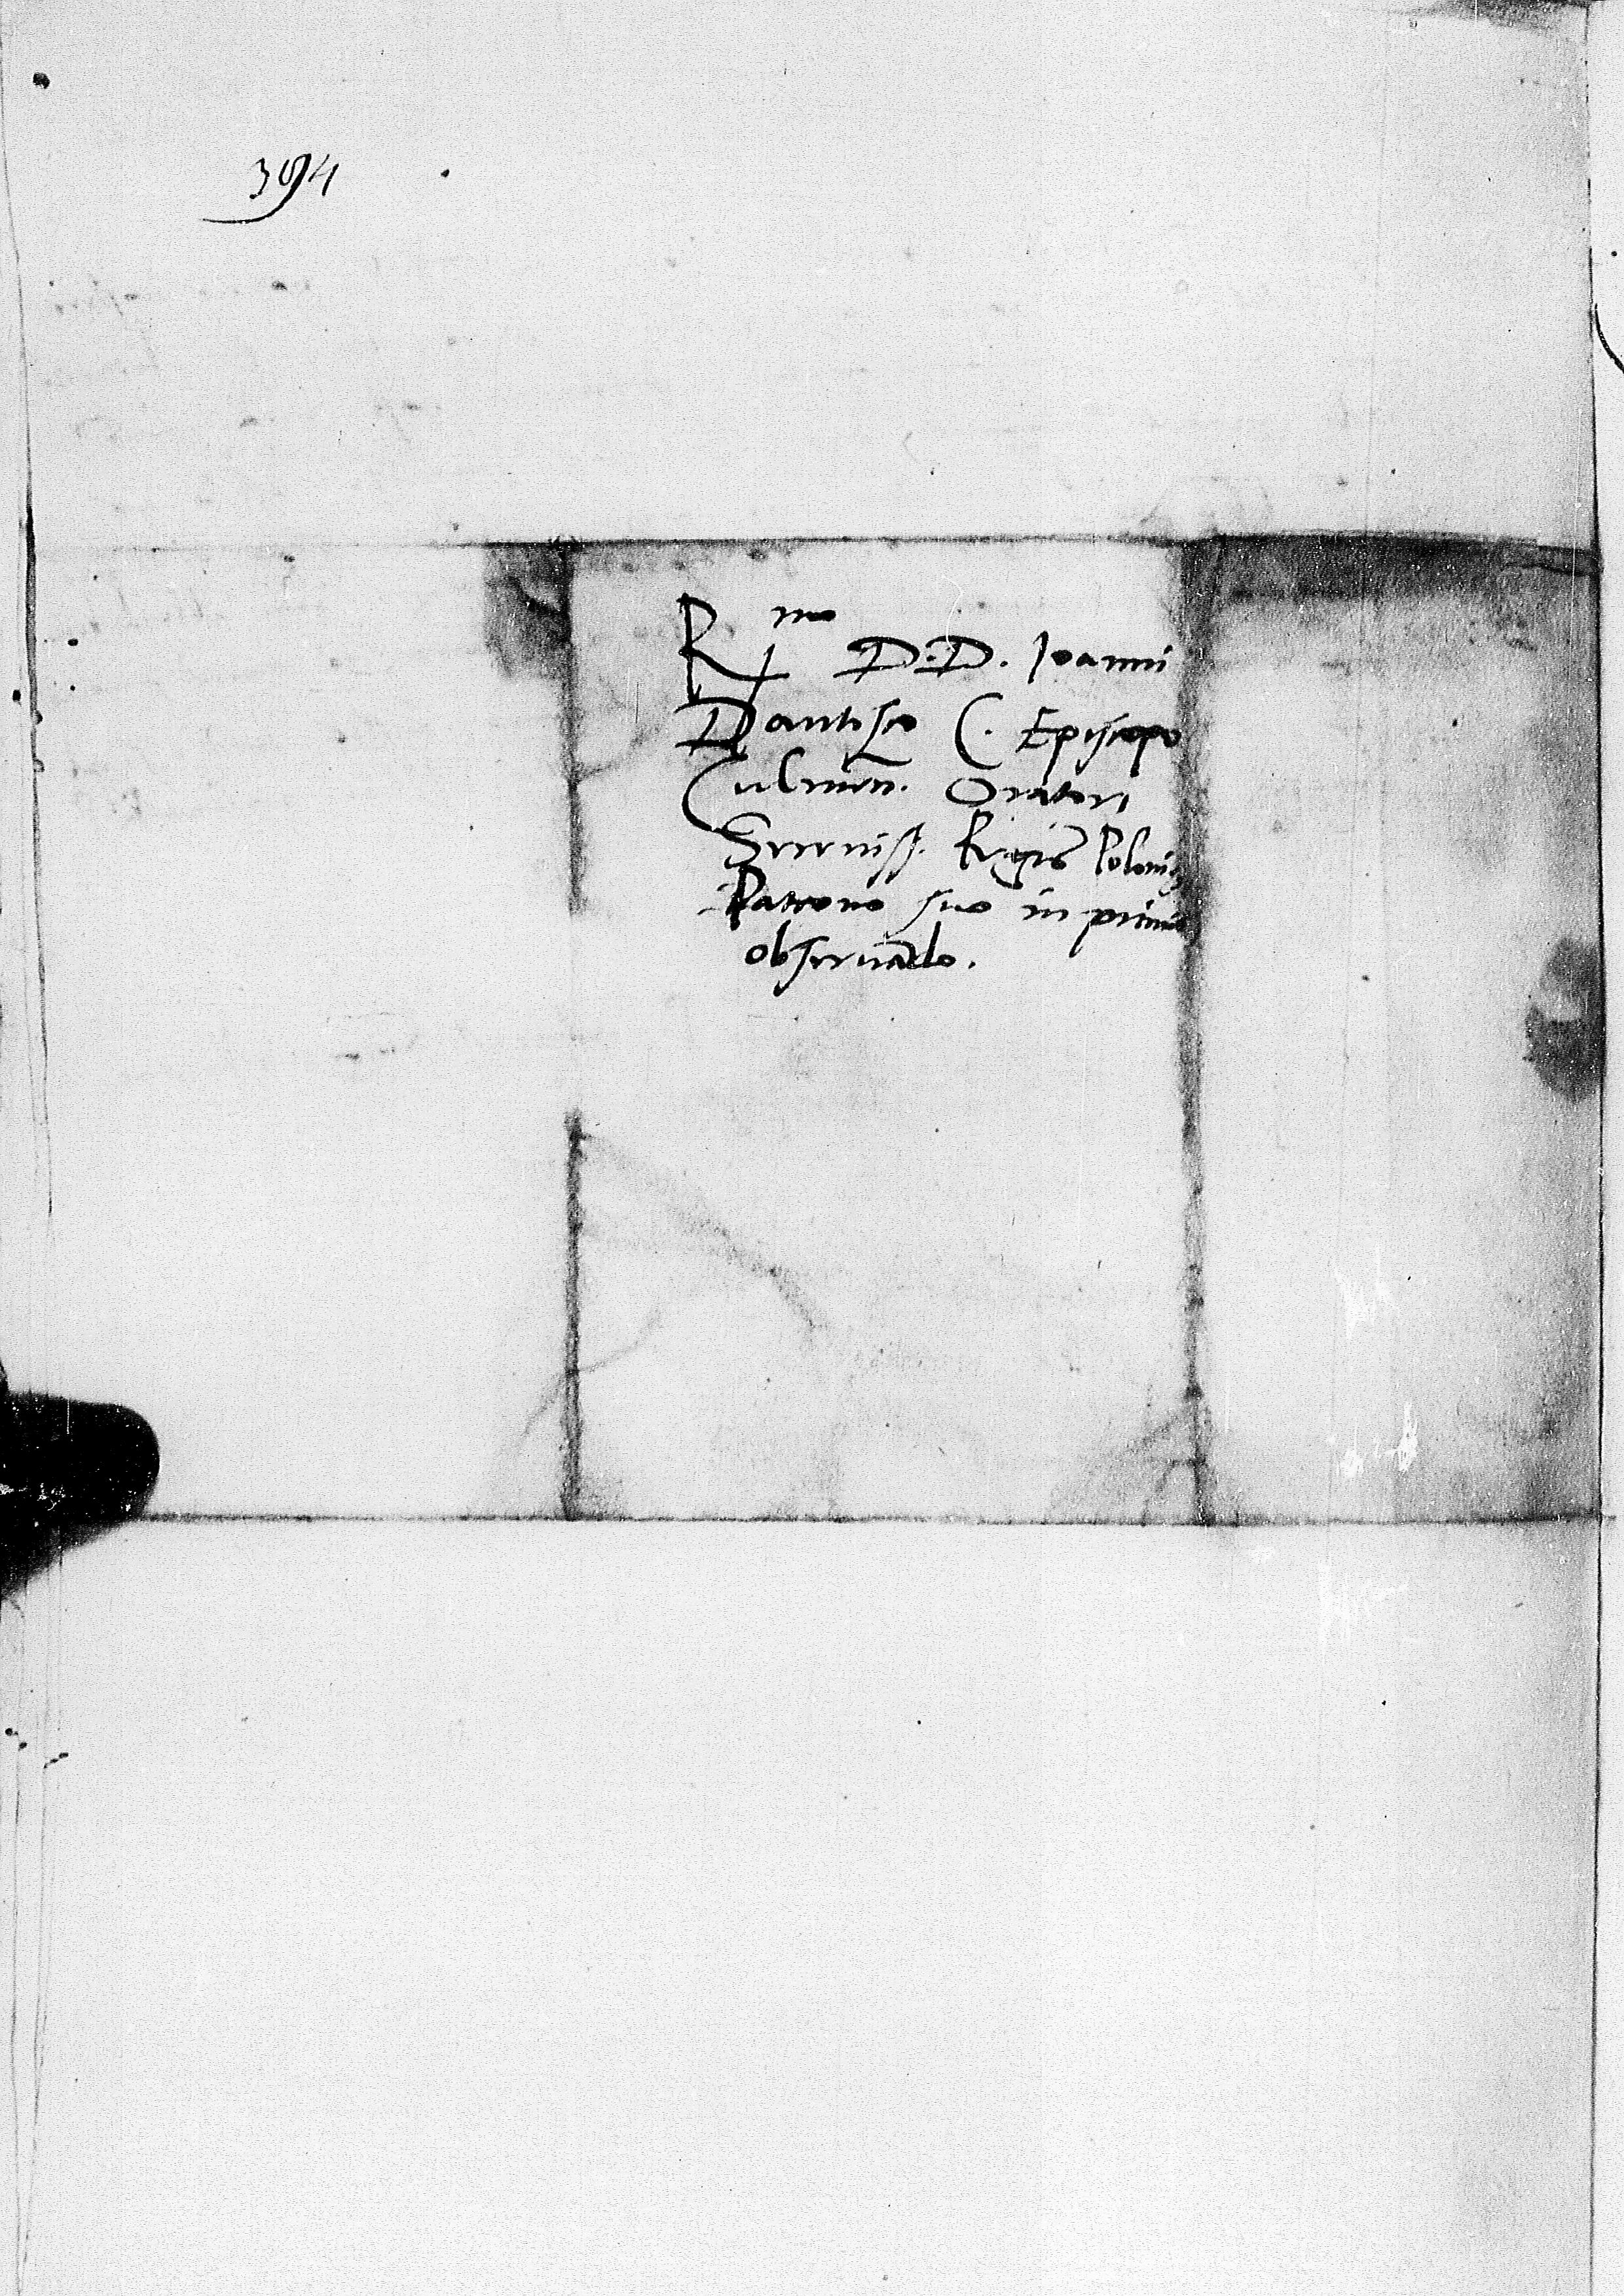 394
Rmo D.D. Ioanni
Dantisco C. Episcopo
Culmen. Oratori
Sereniss. Regis Polonię
Patrono suo in primis
obseruãdo.